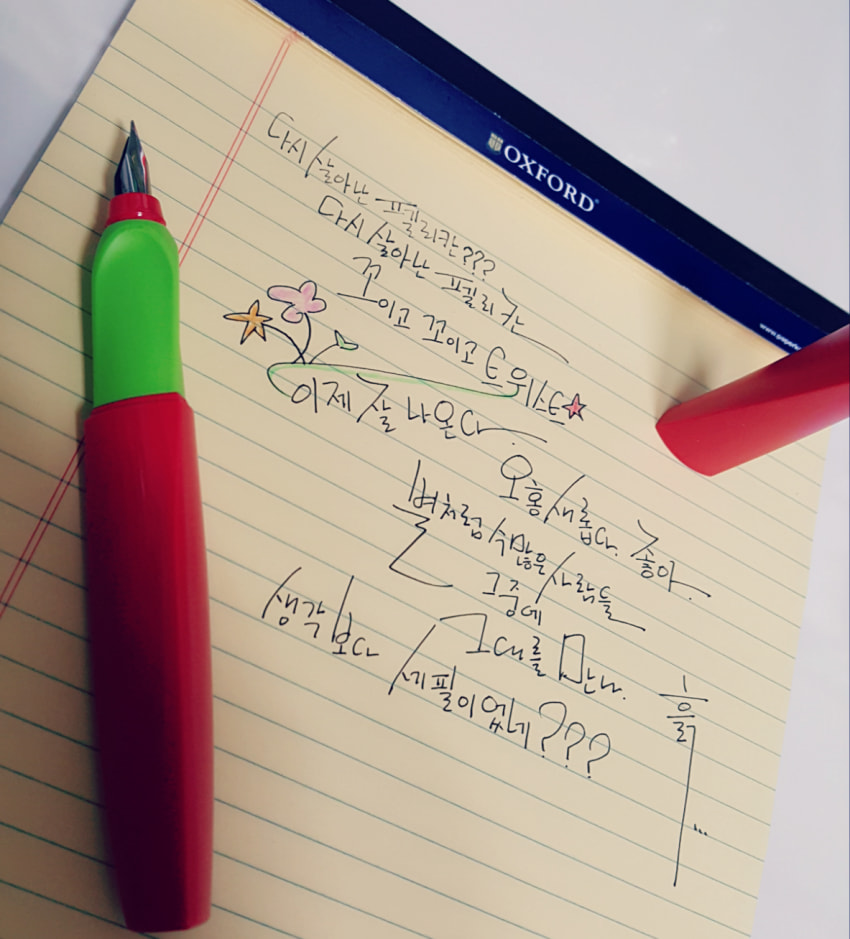 OXFORD
다시 살아난 펠리칸???
다시 살아난 펠리칸
꼬이고 꼬이고 트위스트
이제 잘 나온다
오홍 새롭다. 좋아.
별처럼 수많은 사람들
그중에
그대를 만나.
생각보다 세필이 없네???
흘